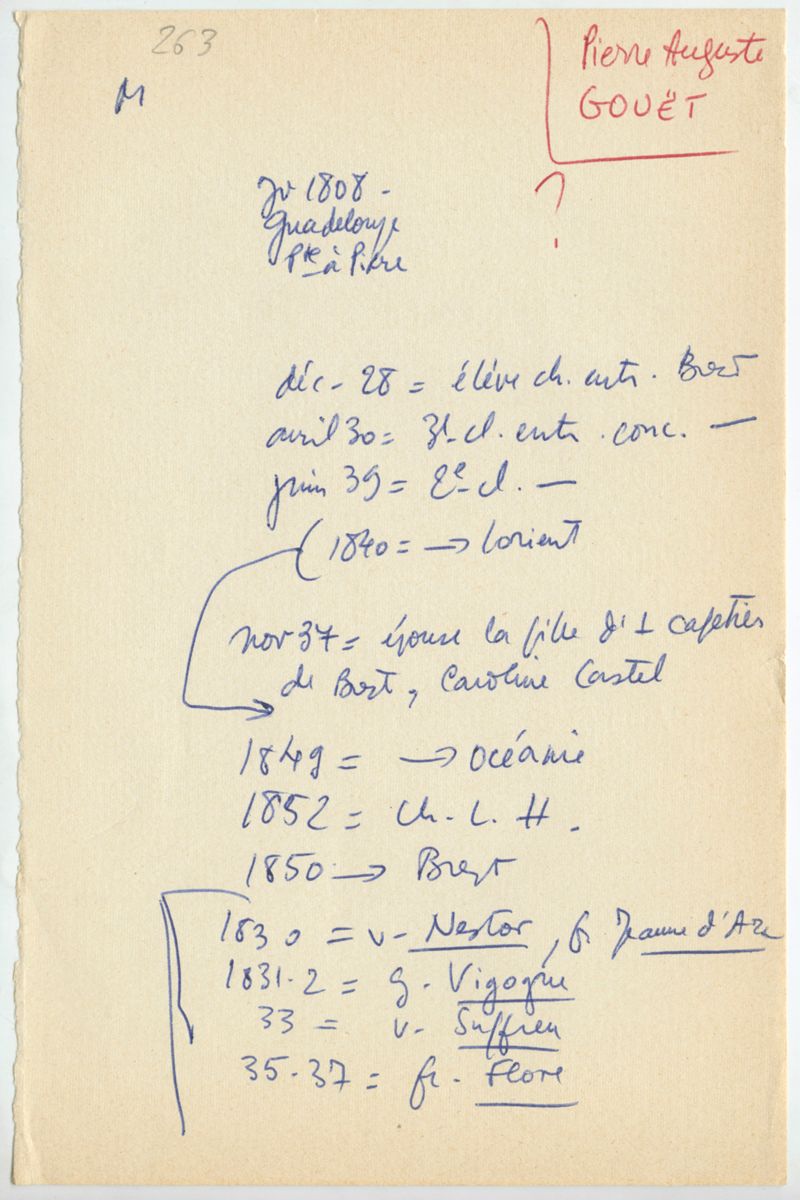 263
M
Pierre Auguste
GOUËT
?
Jv 1808 -
Guadeloupe
Pte à Pitre
déc - 28 = élève ch. entr. Brest
avril 30 = 3e cl. entr. conc. —
juin 39 = 2e cl. —
( 1840 = → Lorient
nov 37 = épouse la fille d'1 cafetier
de Brest, Caroline Castel
1849 = → Océanie
1852 = Ch. L. H.
1850 → Brest
1830 = v - Nestor, fr. Jeanne d'Arc
1831-2 = g - Vigogne
33 = v - Suffren
35-37 = fr - Flore